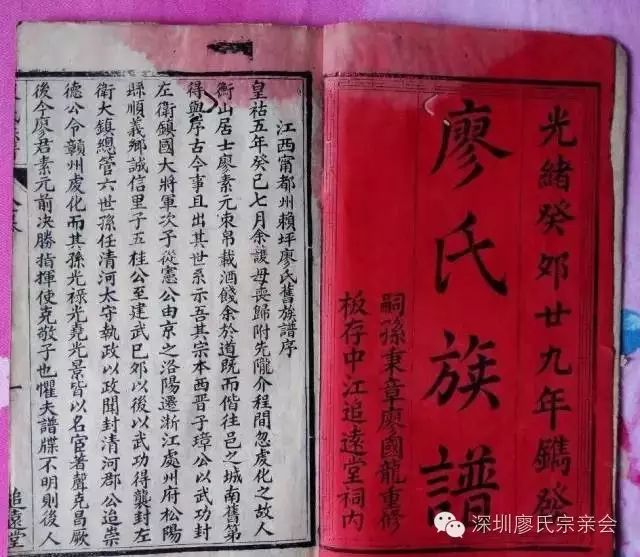 光緒癸卯廿九年鐫發
廖氏族譜
嗣孫秉章廖國龍重修
板存中江追遠堂祠內
江西甯都州賴坪廖氏舊族譜序
皇祐五年癸巳七月余護母喪歸附先隴介程間忽虔化之故人
衡山居士廖素元束帛載酒餞余於道既而偕往邑之城南舊第
得與序古今事且出其世系示吾其宗本西晋子璋公以武功封
左衛鎮國大將軍次子從憲公由京之洛陽遷浙江處州府松陽
縣順義鄉誠信里子五桂公至建武巳卯以後以武功得襲封左
衛大鎮總管六世孫任清河太守執政以政聞封清河郡公追崇
德公令贛州虔化而其孫光祿光堯光景皆以名宦著聲克昌厥
後今廖君素元前决勝指揮使克敬子也懼夫譜牒不明則後人
追遠堂
深圳廖氏宗亲会